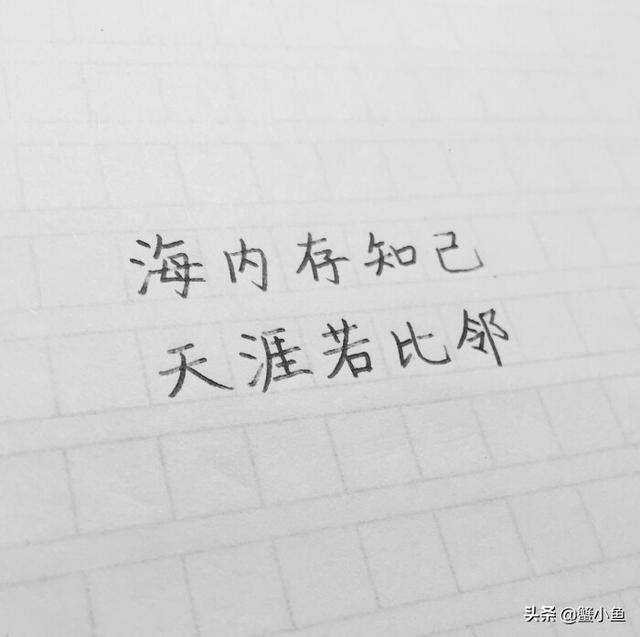 海内存知己
天涯若比邻
头条 @蟹小鱼